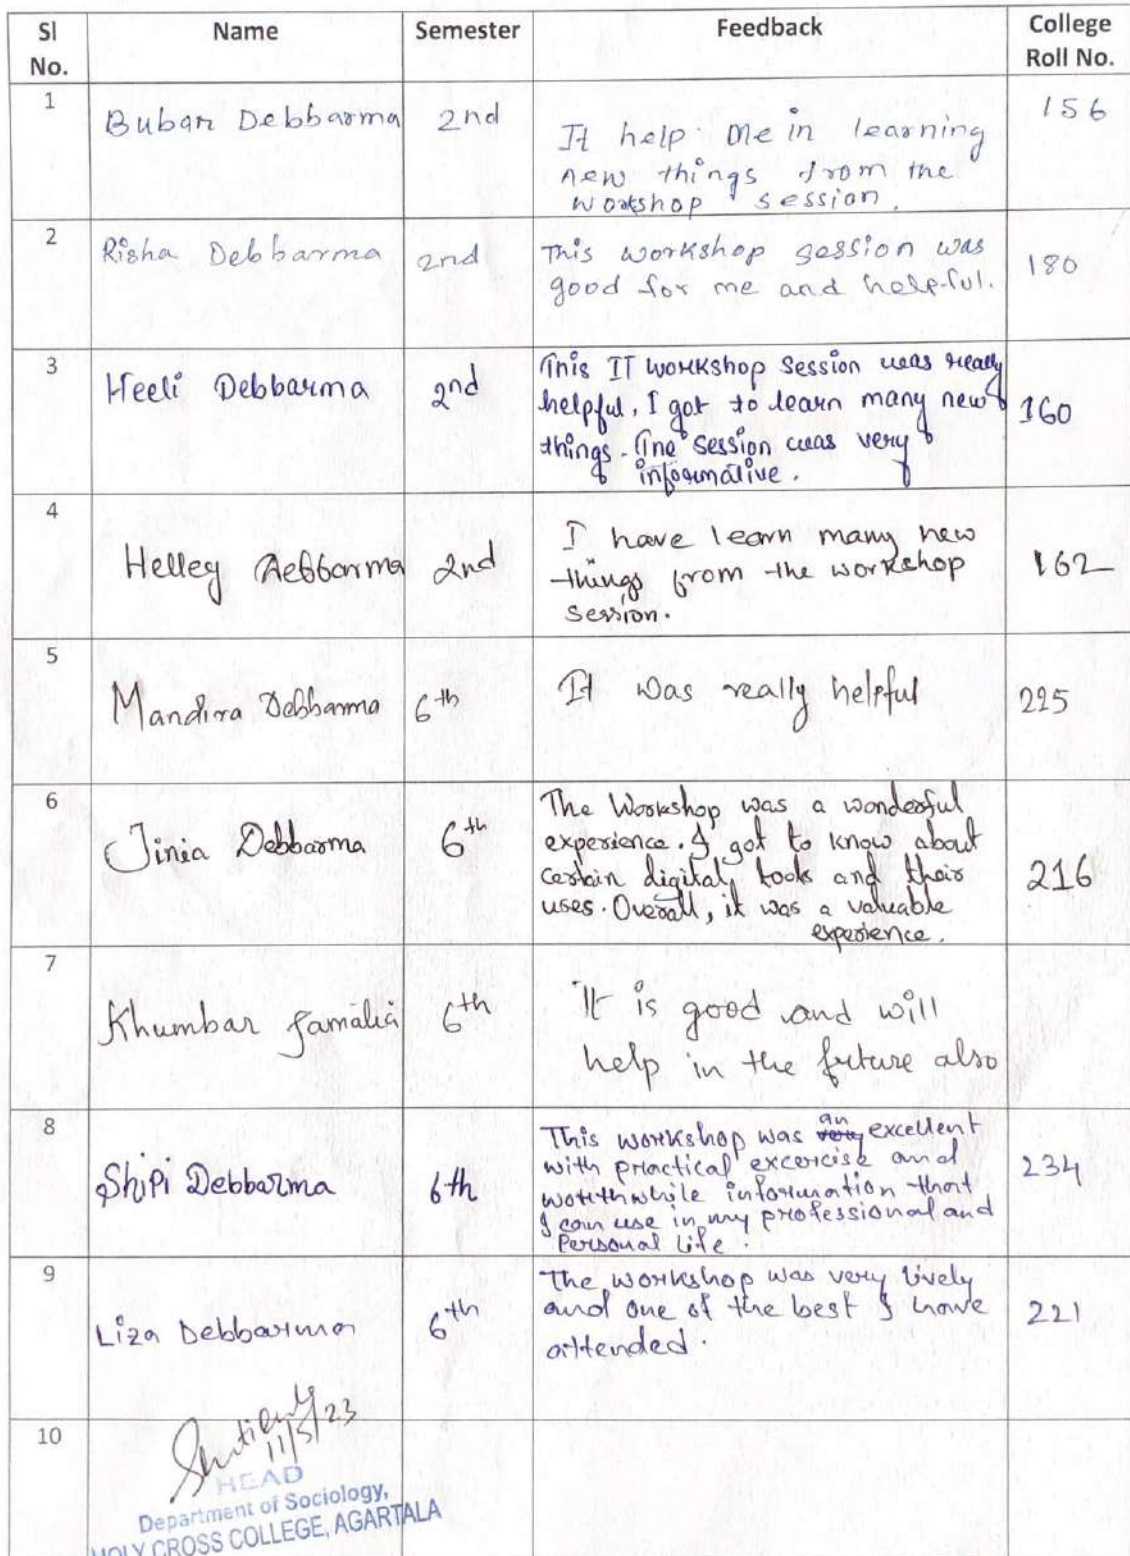 Sl No. Name Semester Feedback College Roll No.
1 Buban Debbarma 2nd 156
It help me in learning
new things from the
workshop session.
2 Risha Debbarma 2nd 180
This workshop session was
good for me and helpful.
3 Heeli Debbarma 2nd 160
This IT workshop session was really
helpful. I got to learn many new
things. The session was very
informative.
4 Helley Debbarma 2nd 162
I have learn many new
things from the workshop
session.
5 Mandira Debbarma 6th 225
It was really helpful
6 Jinia Debbarma 6th 216
The Workshop was a wonderful
experience. I got to know about
certain digital tools and their
uses. Overall, it was a valuable
experience.
7 Khumbar Jamatia 6th
It is good and will
help in the future also
8 Shipi Debbarma 6th 234
This workshop was an excellent
with practical excercise and
worthwhile information that
I can use in my professional and
Personal life.
9 Liza Debbarma 6th 221
The workshop was very lively
and one of the best I have
attended.
10
11/5/23
HEAD
Department of Sociology,
HOLY CROSS COLLEGE, AGARTALA